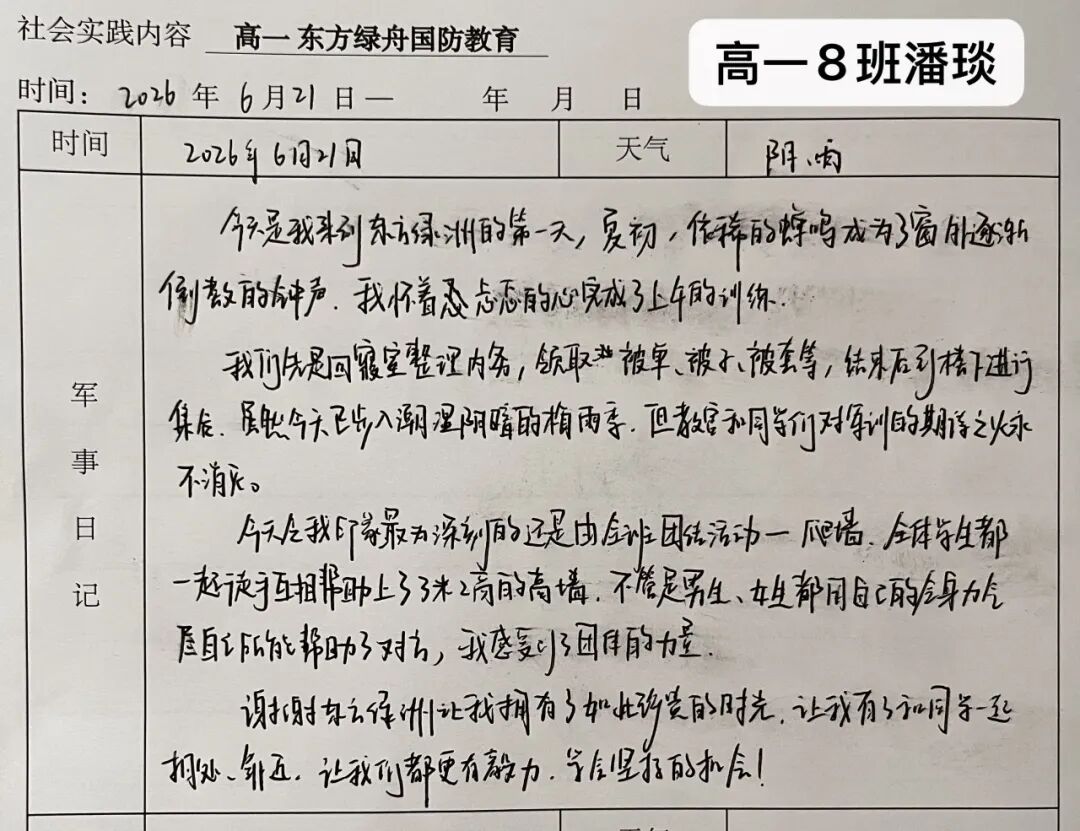 社会实践内容 高一 东方绿舟国防教育
高一8班潘琰
时间： 2026 年 6 月 21 日 — 年 月 日
时间 2026年6月21日 天气 阴、雨
军事日记
今天是我来到东方绿洲的第一天，夏初，依稀的蝉鸣成为了窗外逐渐
倒数的钟声．我怀着忐忑的心完成了上午的训练．
我们先是回寝室整理内务，领取被单、被子、被套等，结束后到楼下进行
集合．虽然今天已步入潮湿阴暗的梅雨季．但教官和同学们对军训的期待之火永
不消灭。
今天令我印象最为深刻的还是由全班团结活动一爬墙．全体学生都
一起徒手互相帮助上了3米2高的高墙．不管是男生、女生都用自己的全身力气
尽自己所能帮助了对方，我感受到了团体的力量．
谢谢东方绿洲让我拥有了如此珍贵的时光．让我有了和同学一起
相处、靠近．让我们都更有毅力．学会坚持的机会！
天气